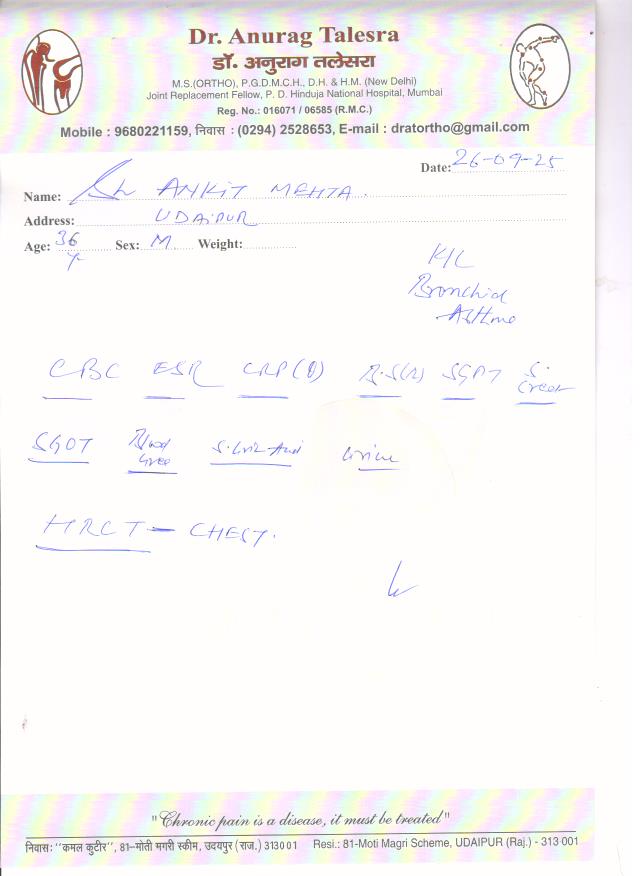 Dr. Anurag Talesra
डॉ. अनुराग तलेसरा
M.S.(ORTHO), P.G.D.M.C.H., D.H. & H.M. (New Delhi)
Joint Replacement Fellow, P. D. Hinduja National Hospital, Mumbai
Reg. No.: 016071 / 06585 (R.M.C.)
Mobile : 9680221159, निवास : (0294) 2528653, E-mail : dratortho@gmail.com
Date: 26-09-25
Name: Sh ANKIT MEHTA
Address: UDAIPUR
Age: 36 Sex: M Weight:
Bronchial
Asthma
CBC ESR CRP(Q) B.S(R) SGPT S. Creat
SGOT Blood Urea S. Uric Acid Urine
HRCT - CHEST.
"Chronic pain is a disease, it must be treated"
निवास: "कमल कुटीर", 81-मोती मगरी स्कीम, उदयपुर (राज.) 313001 Resi.: 81-Moti Magri Scheme, UDAIPUR (Raj.) - 313 001